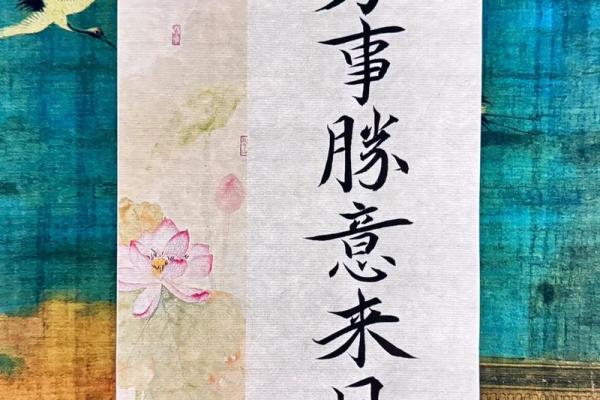 事勝意来